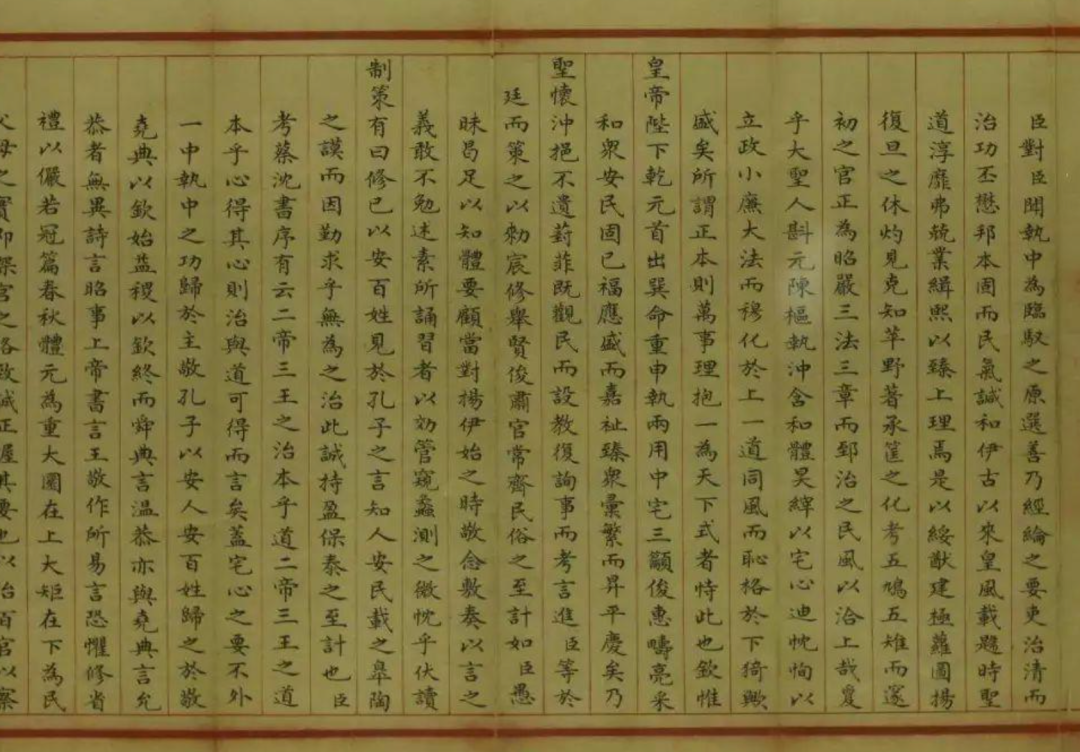 臣對臣聞執中為臨馭之原選善乃經綸之要吏治清而
治功丕懋邦本固而民氣諴和伊古以來皇風載題時聖
道淳靡弗兢業緝熙以臻上理焉是以綏猷建極蘿圖揚
復旦之休灼見克知苹野著承筐之化考五鳩五雉而邃
初之官正為昭嚴三法三章而郅治之民風以洽上哉夐
乎大聖人斟元陳樞執沖含和體昊縡以宅心迪忱恂以
立政小廉大法而穆化於上一道同風而恥格於下猗歟
盛矣所謂正本則萬事理抱一為天下式者恃此也欽惟
皇帝陛下乾元首出巽命重申執兩用中宅三籲俊惠疇亮采
和眾安民固已福應盛而嘉祉臻眾彙繁而昇平慶矣乃
聖懷沖挹不遺葑菲既觀民而設教復詢事而考言進臣等於
廷而策之以勅宸修舉賢俊肅官常齊民俗之至計如臣愚
昧曷足以知體要顧當對揚伊始之時敬念敷奏以言之
義敢不勉述素所誦習者以効管窺蠡測之微忱乎伏讀
制策有曰修己以安百姓見於孔子之言知人安民載之皋陶
之謨而因勤求乎無為之治此誠持盈保泰之至計也臣
考蔡沈書序有云二帝三王之治本乎道二帝三王之道
本乎心得其心則治與道可得而言矣蓋宅心之要不外
一中執中之功歸於主敬孔子以安人安百姓歸之於敬
堯典以欽始益稷以欽終而舜典言溫恭亦與堯典言允
恭者無異詩言昭事上帝書言王敬作所易言恐懼修省
禮以儼若冠篇春秋體元為重大圜在上大矩在下為民
父母之實即